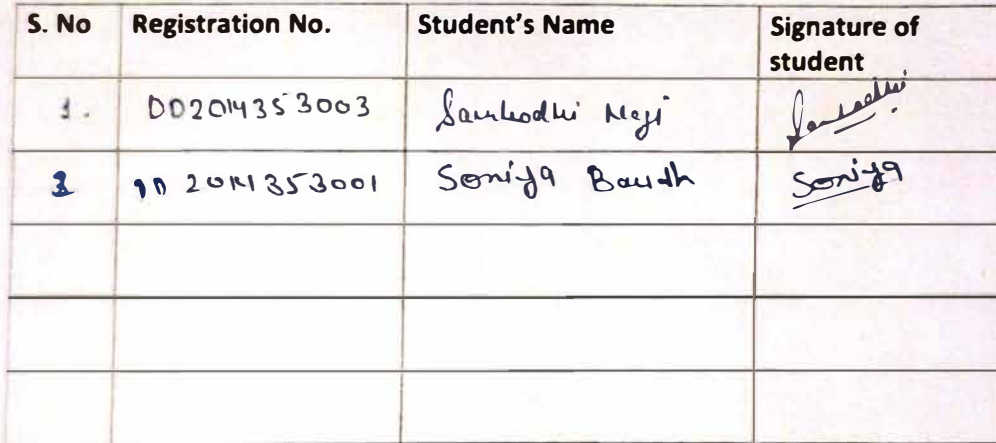 S. No Registration No. Student's Name Signature of student
1. DD2014353003 Sambodhi Negi Sambodhi
2 DD 2014353001 Soniya Baudh Soniya